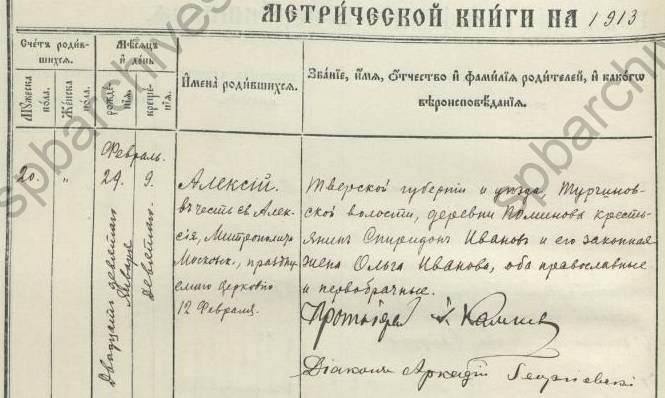 МЕТРИЧЕСКОЙ КНИГИ НА 1913
Счетъ родив-
шихся.
Мужеска пола.
Женска пола.
Мѣсяцъ и день
рожденія.
крещенія.
Имена родившихся.
Званіе, имя, отчество и фамилія родителей, и какого
вѣроисповѣданія.
Февраль.
20.
"
29.
9.
Двадцать девятаго Января
Девятаго
Алексій.
въ честь св. Алек-
сія, Митрополита
Московск., праздну-
емаго Церковію
12 Февраля.
Тверской губерніи и уѣзда,
ской волости, деревни крестья-
янинъ Спиридонъ Ивановъ и его законная
жена Ольга Иванова, оба православные
и первобрачные.
Протоіерей
Діаконъ Аркадій Георгіевскій
spbarchives
spbarchives